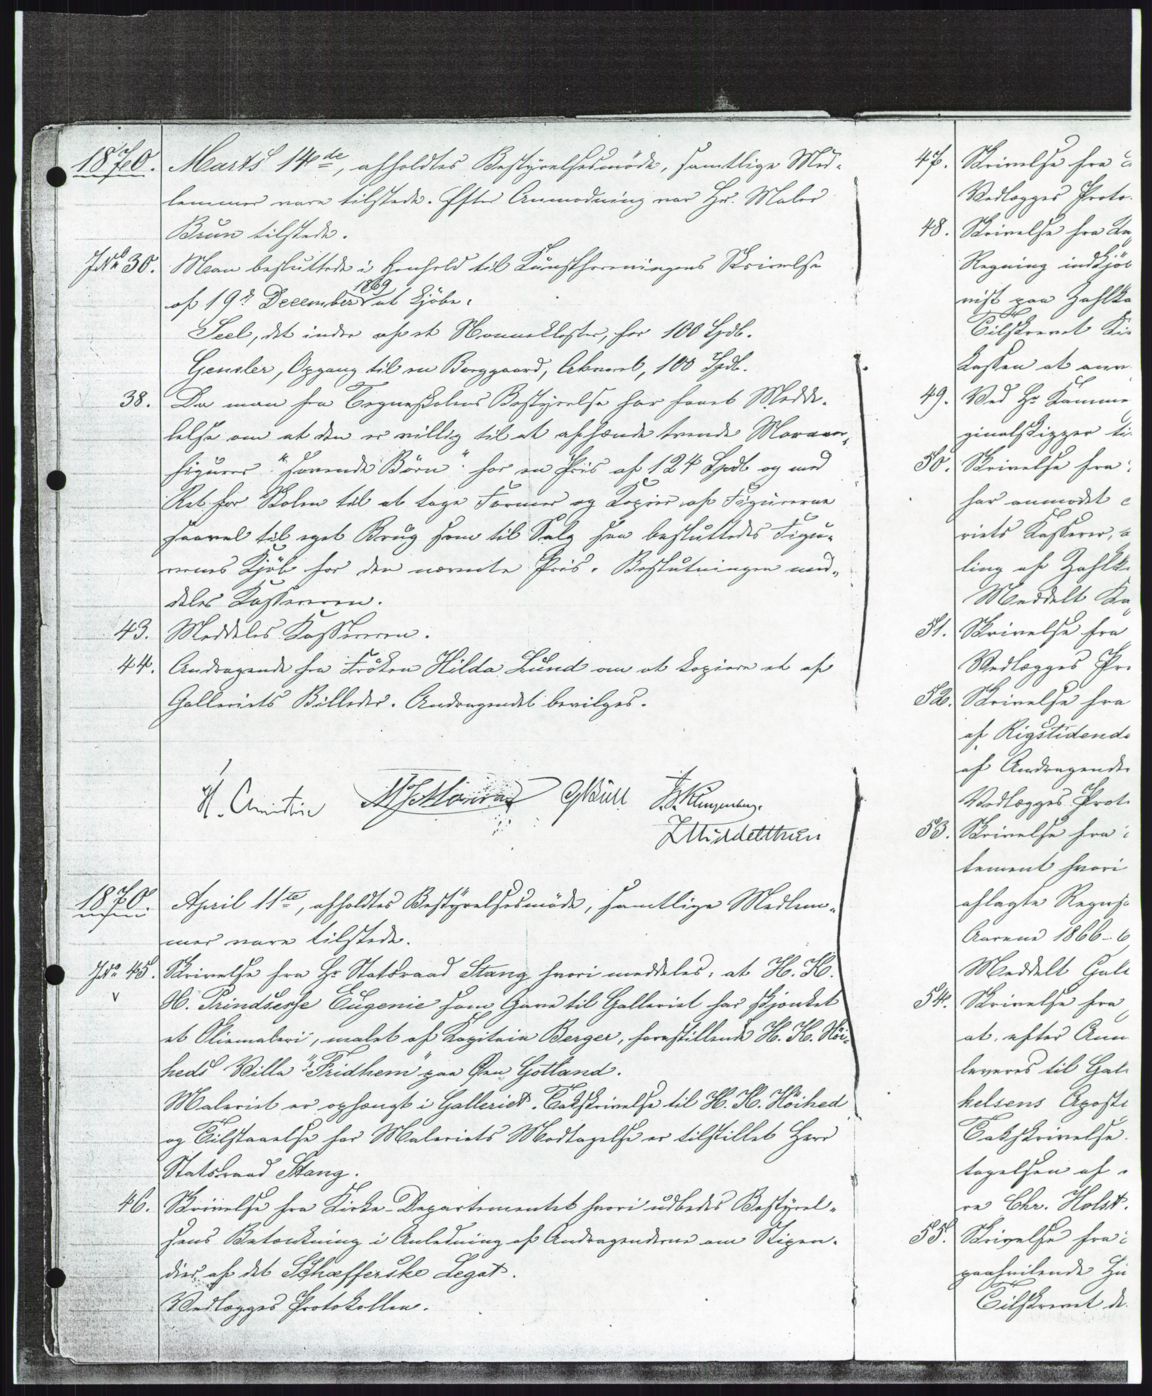 1870. Marts 14de, afholdtes Bestyrelsesmöde, samtlige Med-
lemmer vare tilstede. Efter Anmodning var Hr. Maler
Brun tilstede.
JNo 30. Man besluttede i Henhold til Kunstforeningens Skrivelse
af 19de December 1869 at kjöbe:
Seel, det indre af et Nonnekloster, for 100 Spdl.
Gensler, Opgang til en Borggaard, Akvarel, 100 Spdl.
38. Da man fra Tegneskolens Bestyrelse har faaet Medde-
lelse om at den er villig til at afhænde tvende Marmor-
figurer "sovende Börn" for en Pris af 124 Spdl og med
Ret for Skolen til at tage Former og Kopier af Figurerne
saavel til eget Brug som til Salg saa besluttedes Figu-
rernes Kjöb for den nævnte Pris. Beslutningen med-
deles Kassereren.
43. Meddeles Kassereren.
44. Andragende fra Fröken Hilda Lund om at kopiere et af
Galleriets Billeder. Andragendet bevilges.
H. Christie G Bull
J Middelthun
1870. April 11te, afholdtes Bestyrelsesmöde, samtlige Medlem-
mer vare tilstede.
JNo 45. Skrivelse fra Hr Statsraad Stang hvori meddeles, at H. K.
H. Prindsesse Eugenie som Gave til Galleriet har skjænket
et Oliemaleri, malet af Kapitain Berger, forestillende H. K. Höi-
heds Villa "Fridhem" paa Öen Gotland.
Maleriet er ophængt i Galleriet. Takskrivelse til H. K. Höihed
og Tilstaaelse for Maleriets Modtagelse er tilstillet Herr
Statsraad Stang.
46. Skrivelse fra Kirke-Departementet hvori udbedes Bestyrel-
sens Betænkning i Anledning af Andragenderne om Stipen-
dier af det Schæfferske Legat.
Vedlægges Protokollen.
47. Skrivelse fra
Vedlægges Proto
48. Skrivelse fra
Regning indkjöb
vist paa
Tilskrevet
Kassen at
49. Ved Hr Kamme
ginalskizzer ti
50. Skrivelse fra
har anmodet
riets Kasserer,
ling af
Meddelt Ka
51. Skrivelse fra
Vedlægges Pr
52. Skrivelse fra
af Rigstidende
af Andragende
Vedlægges Prot
53. Skrivelse fra
tement hvori
aflagte
Aarene 1866-6
Meddelt Gall
54. Skrivelse fra
at efter Ann
leveres til Gal
kelsens Aposte
Takskrivelse
tagelsen af
re Chr. Holst.
55. Skrivelse fra
paahvilende
Tilskrevet de